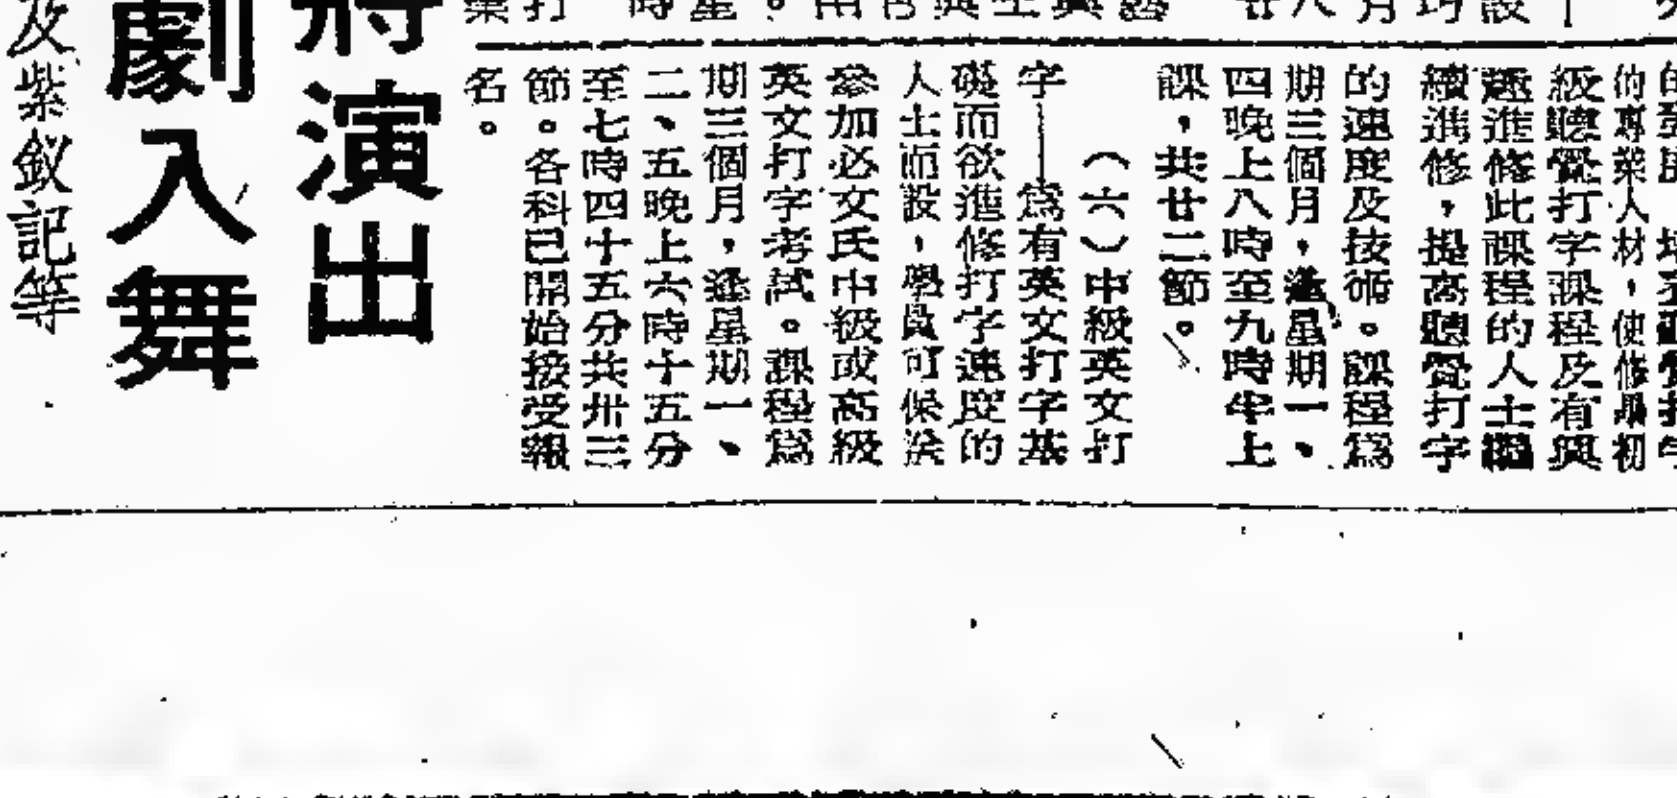 的專業人材，使修畢初
級聽覺打字課程及有興
趣進修此課程的人士繼
續進修，提高聽覺打字
的速度及技術。課程為
期三個月，逢星期一、
四晚上八時至九時半上
課，共廿二節。
（六）中級英文打
字——為有英文打字基
礎而欲進修打字速度的
人士而設，學員可保送
參加必文氏中級或高級
英文打字考試。課程為
期三個月，逢星期一、
二、五晚上六時十五分
至七時四十五分共卅三
節。各科已開始接受報
名。
將演出
劇入舞
及紫釵記等